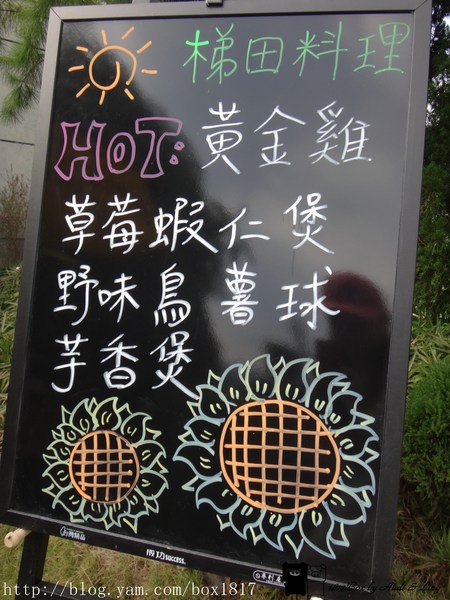 梯田料理
HOT: 黃金雞
草莓蝦仁煲
野味鳥薯球
芋香煲
success.
http://blog.yam.com/box1817